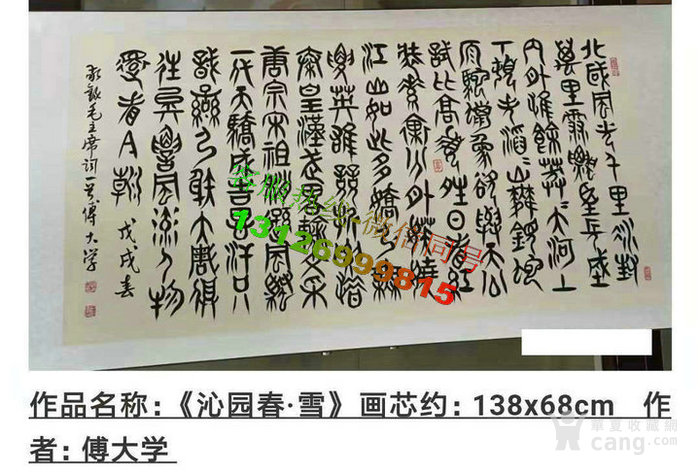 北國風光千里冰封
萬里雪飄望長城
內外惟餘莽莽大河上
下頓失滔滔山舞銀蛇
原馳蠟象欲與天公
試比高須晴日看紅
裝素裹分外妖嬈
江山如此多嬌引無
數英雄競折腰惜
秦皇漢武略輸文采
唐宗宋祖稍遜風騷
一代天驕成吉思汗只
識彎弓射大雕俱
往矣數風流人物
還看今朝
敬錄毛主席詞一首傅大学
戊戌春
客服热线-微信同号
13126999815
作品名称:《沁园春·雪》画芯约: 138x68cm 作
者: 傅大学
華夏收藏網
cang.com